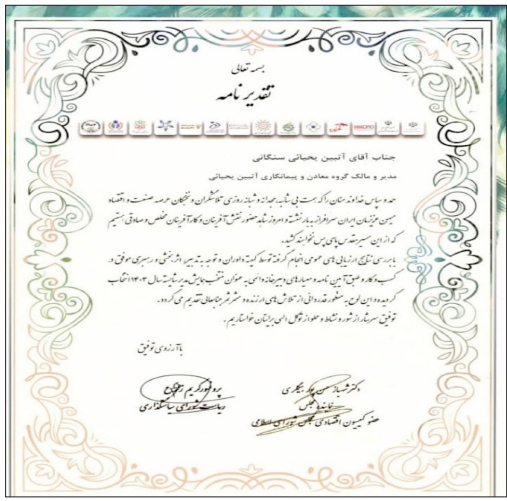 بسمه تعالی
تقدیرنامه
جناب آقای آتبین یحیائی سنگانی
مدیر و مالک گروه معادن و پیمانکاری آتبین یحیائی
حمد و سپاس خداوند منان را که به تلاشگران و نخبگان عرصه صنعت و اقتصاد
میهن عزیزمان ایران سرافراز به بار نشسته و امروز شاهد حضور نقش آفرینان و کارآفرینان مخلص و صادقی هستیم
که از این مسیر مقدس پای پس نخواهند کشید.
با بررسی نتایج ارزیابی های عمومی انجام گرفته توسط کمیته داوران و توجه به تدبیر، اثربخشی و رهبری موفق در
کسب و کار و طبق آیین نامه و معیارهای دبیرخانه دائمی به عنوان منتخب همایش مدیر شایسته سال ۱۴۰۲ انتخاب
گردیده و این لوح به منظور قدردانی از تلاش های ارزنده و مثمر ثمر جنابعالی تقدیم می گردد.
توفیق سرشار از شور و نشاط و مملو از توکل الهی برایتان خواستاریم.
با آرزوی توفیق
دکتر شهباز حسن پور بیگلری
نماینده مجلس
عضو کمیسیون اقتصادی مجلس شورای اسلامی
پروفسور کریم
ریاست شورای سیاستگذاری